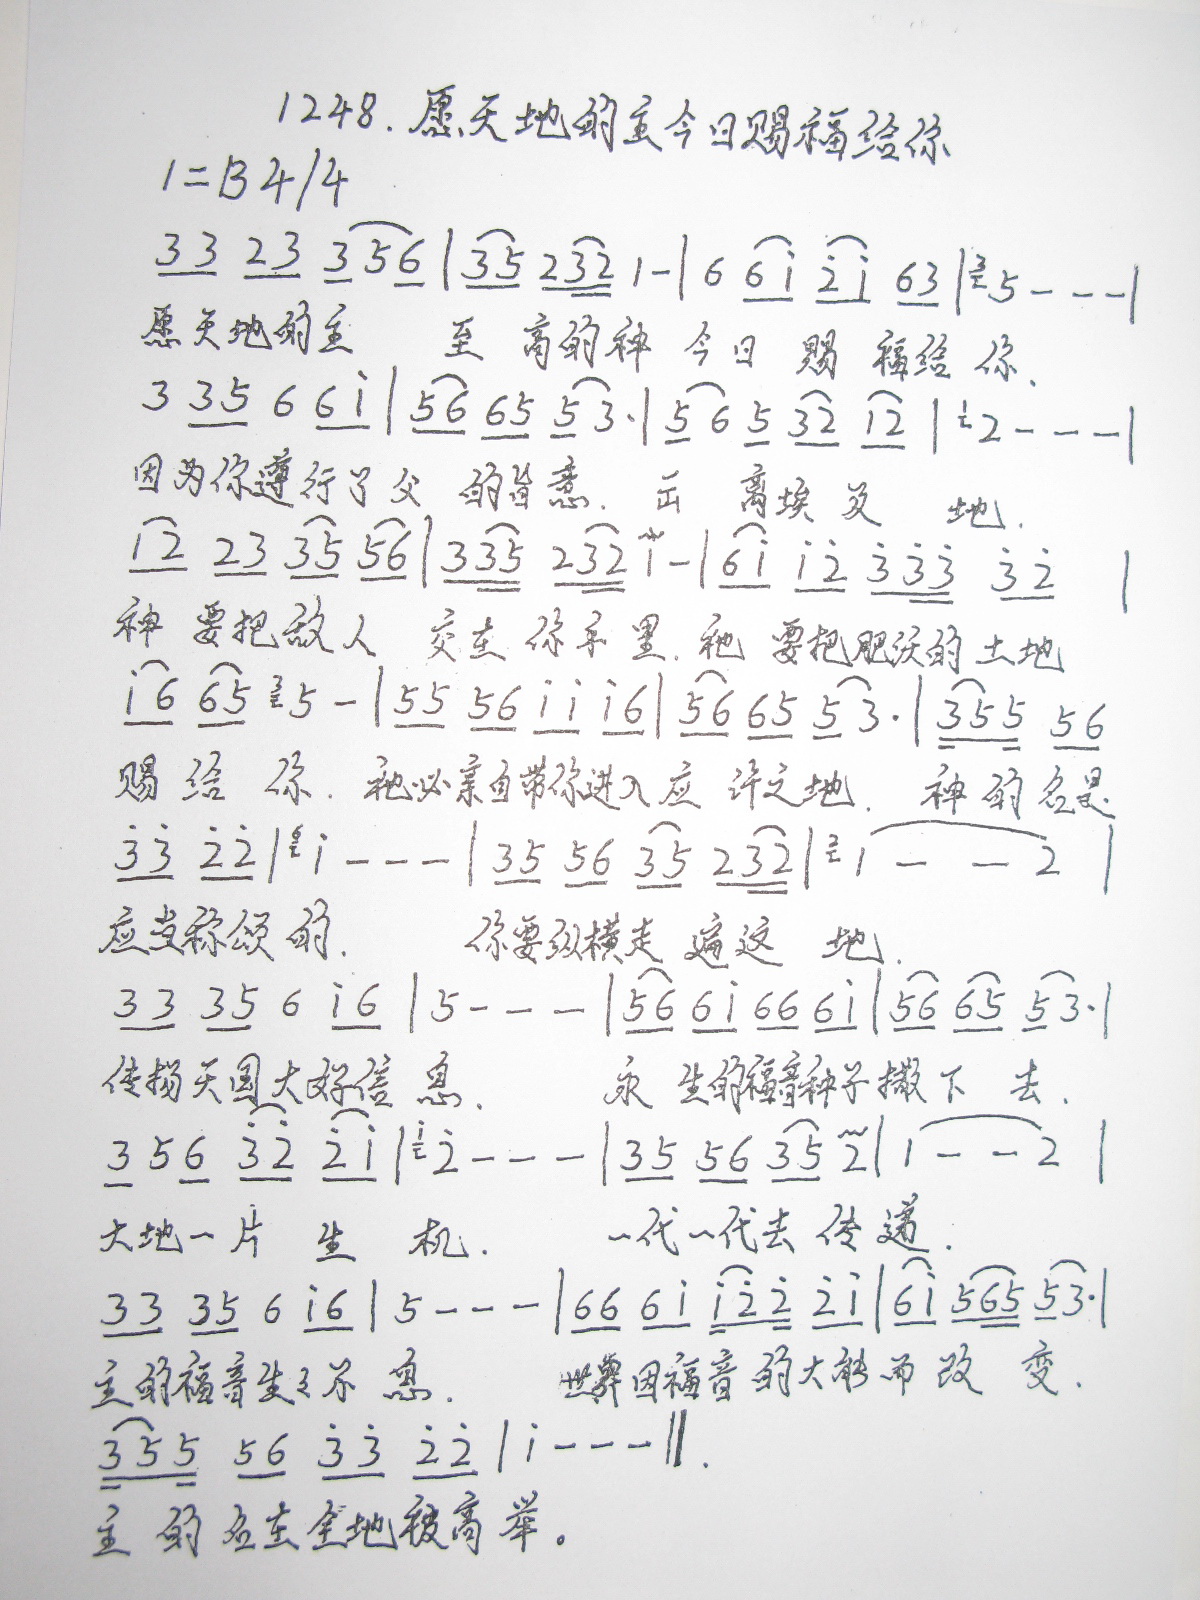 1248.愿天地的主今日赐福给你
1=B 4/4
33 23 356|35 232 1-|6 6i 2i 63|3 5---|
愿天地的主 至高的神 今日赐福给你.
3 35 6 6i|56 65 53·|56 5 32 12|1 2---|
因为你遵行了父的旨意.出离埃及地.
12 23 35 56|335 232 1-|6i i2 333 32|
神要把敌人交在你手里.祂要把肥沃的土地
i6 65 3 5-|55 56 ii i6|56 65 53·|355 56
赐给你.祂必亲自带你进入应许之地.神的名是
33 22|6 i---|35 56 35 232|2 1--2|
应当称颂的. 你要纵横走遍这地.
33 35 6 i6|5---|56 6i 66 6i|56 65 53·|
传扬天国大好信息. 永生的福音种子撒下去.
3 56 32 2i|i 2---|35 56 35 2|1--2|
大地一片生机. 一代一代去传递.
33 35 6 i6|5---|66 6i i22 2i|6i 565 53·|
主的福音生生不息. 世界因福音的大能而改变.
355 56 33 22|i---‖.
主的名在全地被高举。